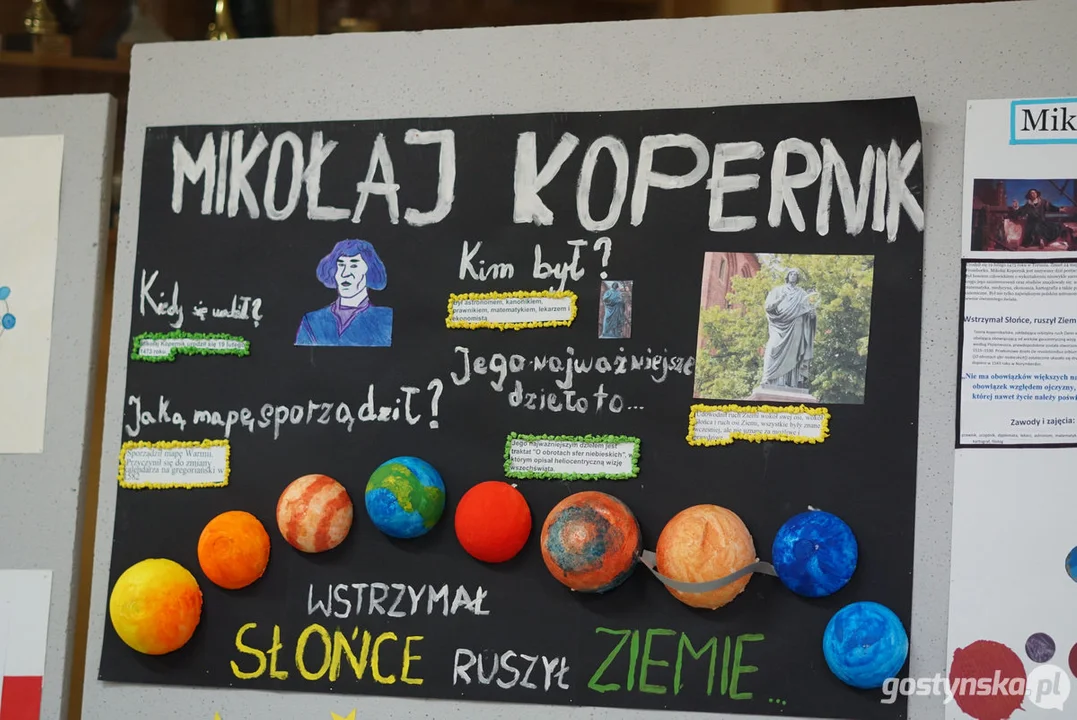 MIKOŁAJ KOPERNIK
Kiedy się urodził?
Mikołaj Kopernik urodził się 19 lutego
1473 roku
Kim był?
Był astronomem, kanonikiem,
prawnikiem, matematykiem, lekarzem i
ekonomistą
Jego najważniejsze
dzieło to...
Jego najważniejszym dziełem jest
traktat "O obrotach sfer niebieskich", w
którym opisał heliocentryczną wizję
wszechświata.
Jaką mapę sporządził?
Sporządził mapę Warmii.
Przyczynił się do zmiany
kalendarza na gregoriański w
1582
Udowodnił ruch Ziemi wokół owej osi, wokół
słońca i ruch osi Ziemi, wszystkie były znane
wcześniej, ale nie uznane za możliwe i
prawdziwe
WSTRZYMAŁ
SŁOŃCE RUSZYŁ ZIEMIE...
Mik
Wstrzymał Słońce, ruszył Ziem
„Nie ma obowiązków większych na
obowiązek względem ojczyzny,
której nawet życie należy poświ
Zawody i zajęcia:
gostynska.pl